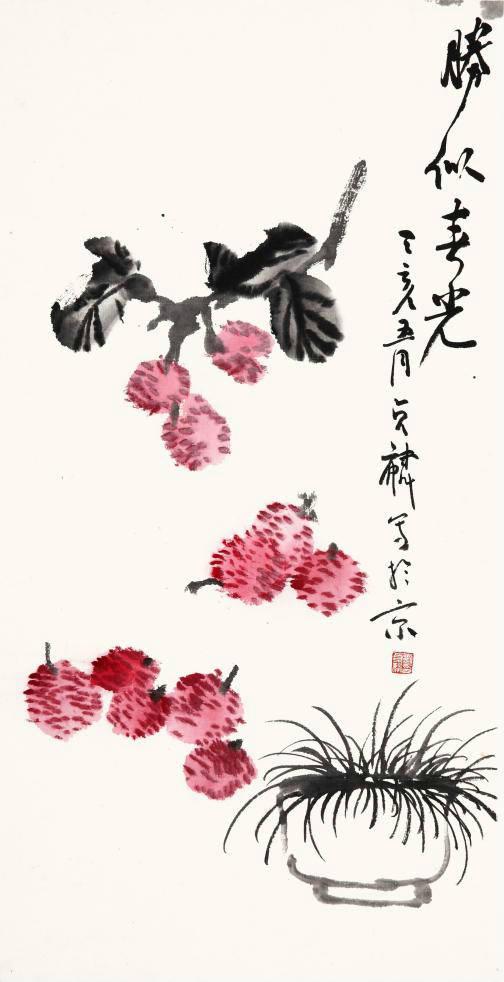 勝似春光
丁亥五月 写於京